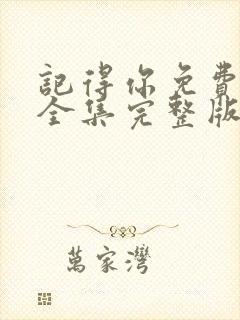 記得你免費
全集完整版
萬家灣